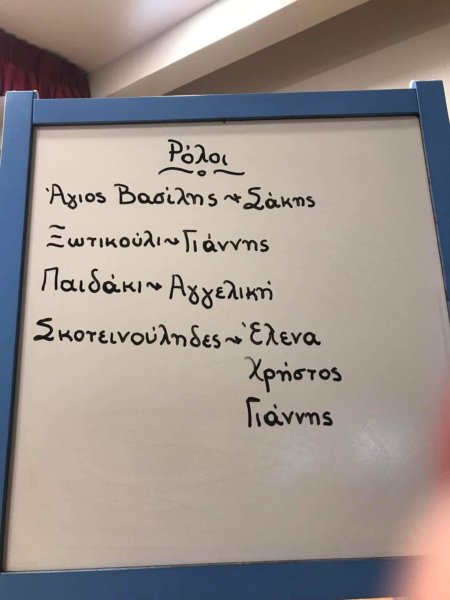 Ρόλοι
Άγιος Βασίλης → Σάκης
Ξωτικούλι → Γιάννης
Παιδάκι → Αγγελική
Σκοτεινούληδες → Έλενα
Χρήστος
Γιάννης